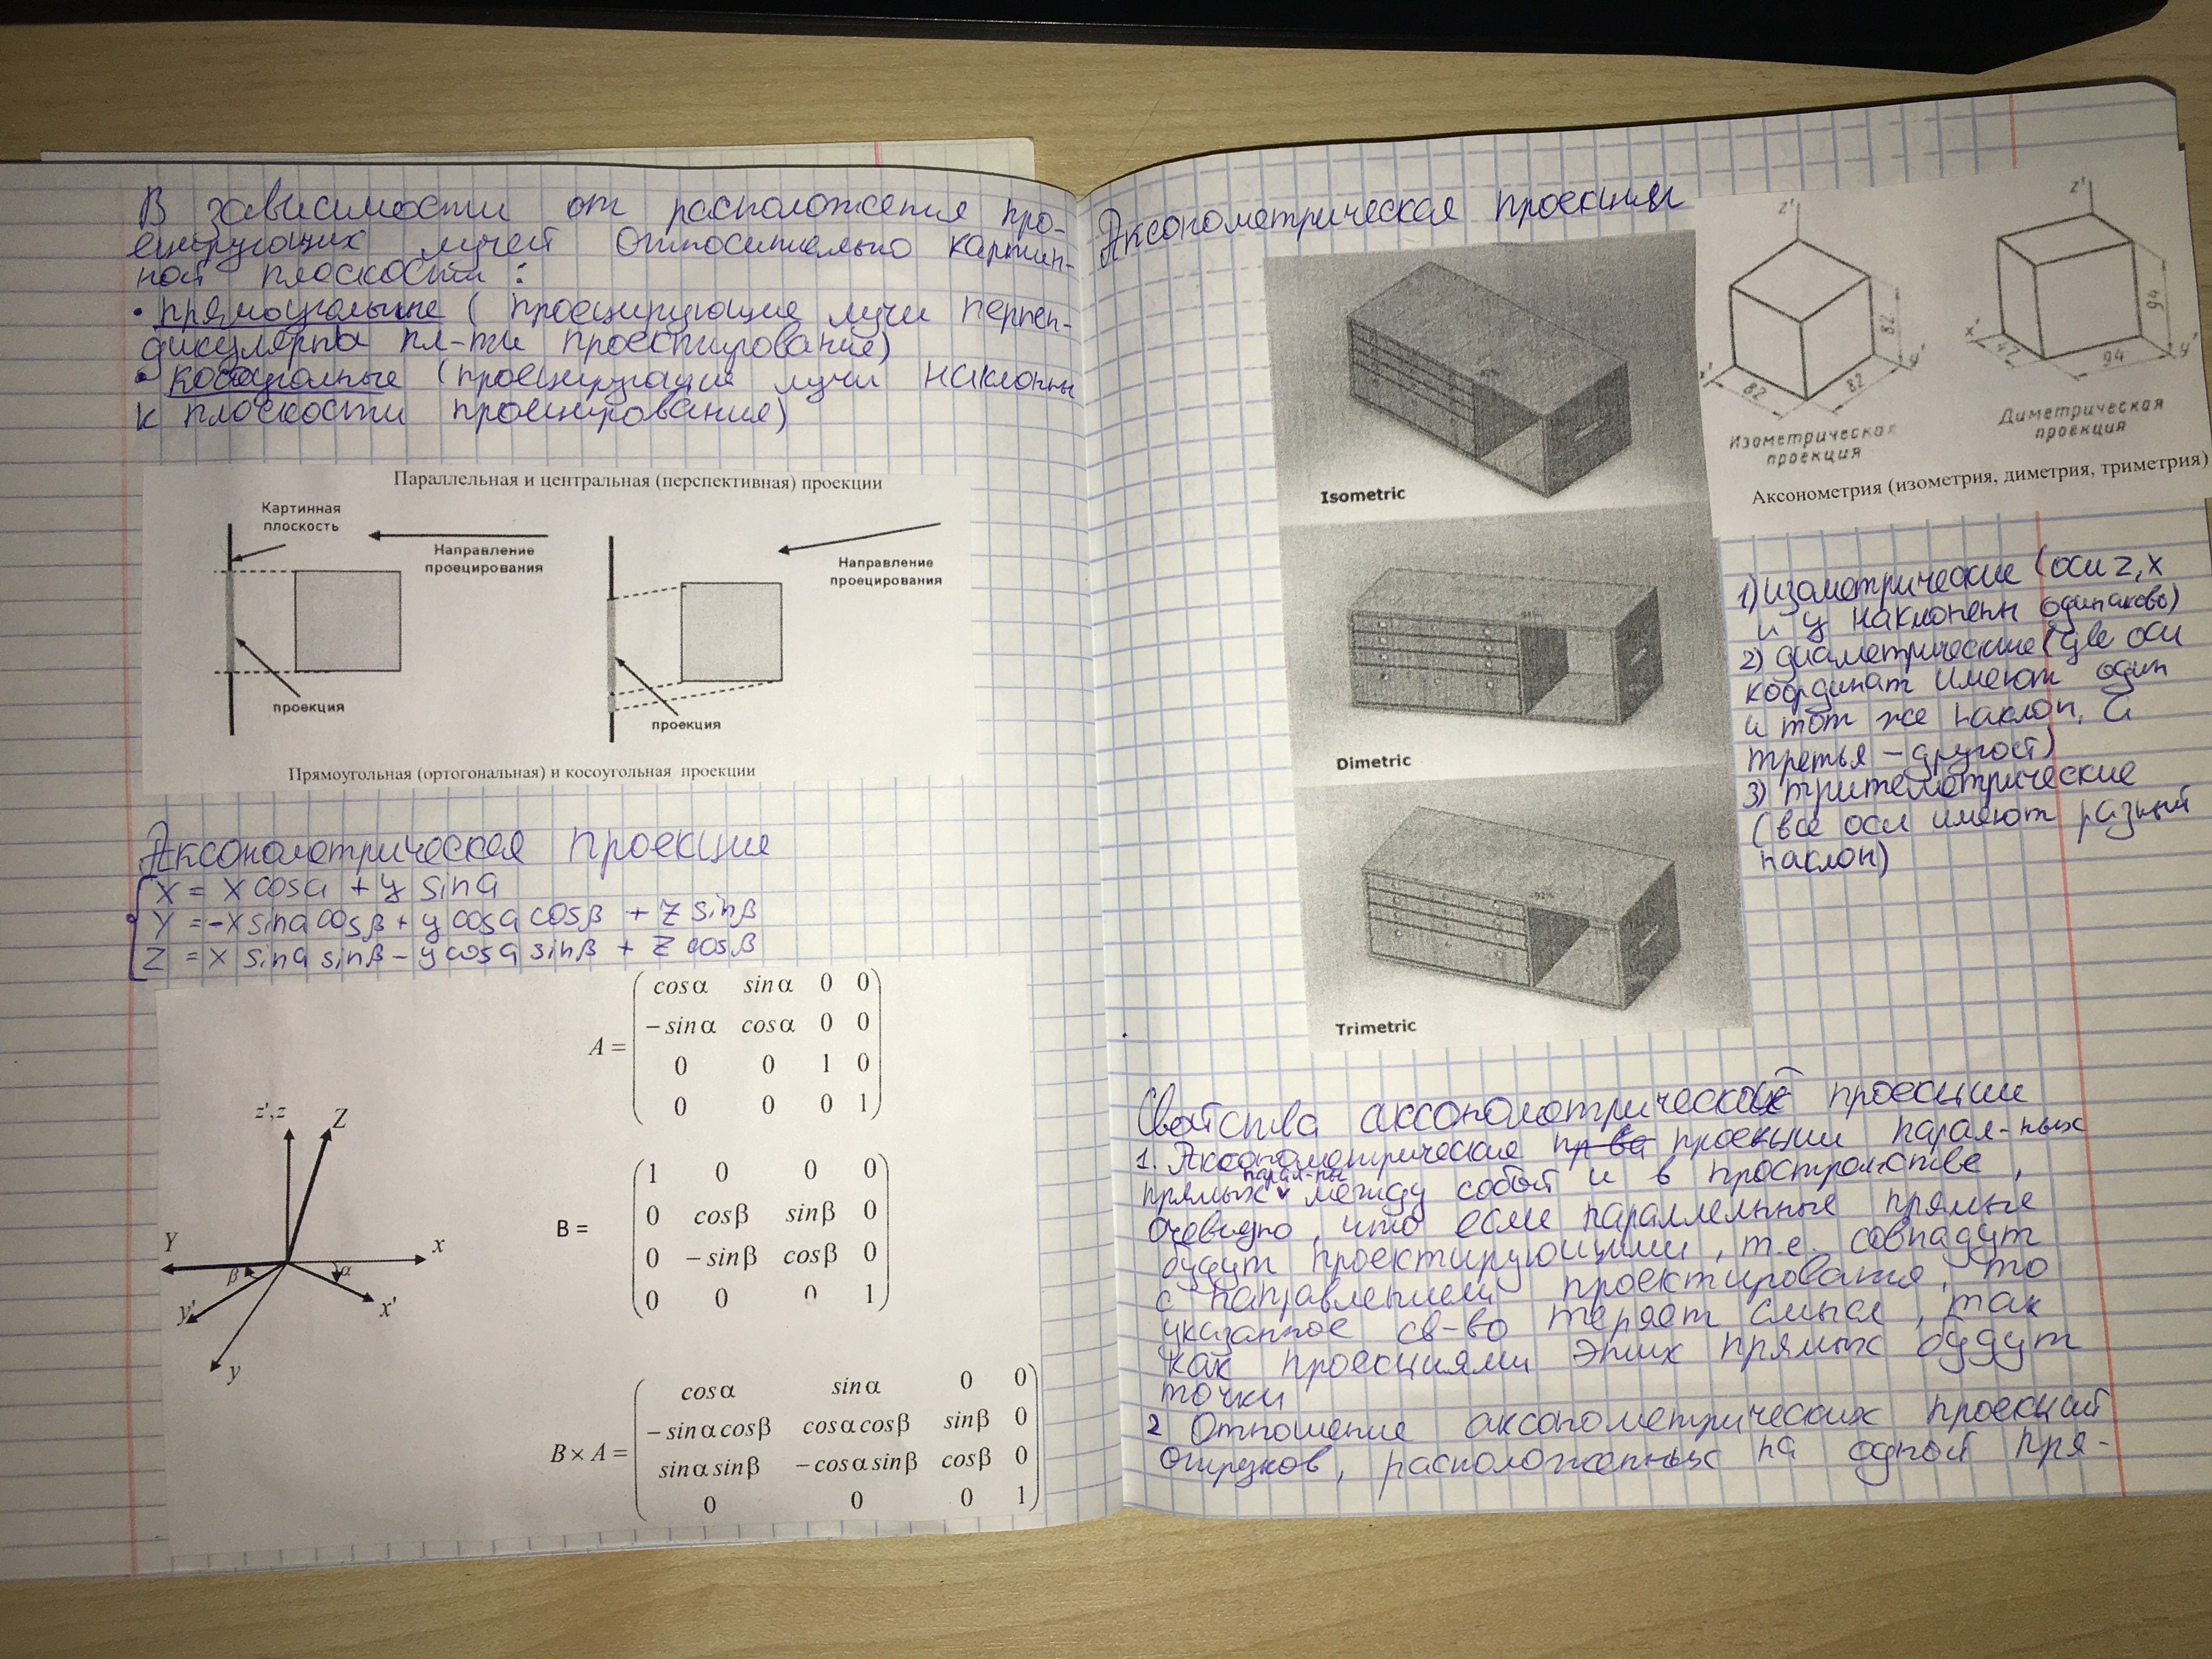 В зависимости от расположения про-
ецирующих лучей относительно картин-
ной плоскости:
• прямоугольные (проецирующие лучи перпен-
дикулярны пл-ти проецирование)
• косоугольные (проецирующие лучи наклонны
к плоскости проецирование)
Параллельная и центральная (перспективная) проекции
Картинная
плоскость
Направление
проецирования
проекция
Направление
проецирования
проекция
Прямоугольная (ортогональная) и косоугольная проекции
Аксонометрическая проекция
X = x cosα + y sinα
Y = -x sinα cosβ + y cosα cosβ + z sinβ
Z = x sinα sinβ - y cosα sinβ + z cosβ
z',z
Z
Y
x
β
α
y'
x'
y
A =
cosα sinα 0 0
-sinα cosα 0 0
0 0 1 0
0 0 0 1
B =
1 0 0 0
0 cosβ sinβ 0
0 -sinβ cosβ 0
0 0 0 1
B × A =
cosα sinα 0 0
-sinαcosβ cosαcosβ sinβ 0
sinαsinβ -cosαsinβ cosβ 0
0 0 0 1
Аксонометрическая проекция
Isometric
Dimetric
Trimetric
z'
x'
y'
82
82
82
Изометрическая
проекция
z'
x'
y'
94
94
Диметрическая
проекция
Аксонометрия (изометрия, диметрия, триметрия)
1) изометрические (оси z, x
и y наклонены одинаково)
2) диаметрические (две оси
координат имеют один
и тот же наклон, а
третья – другой)
3) тритеметрические
(все оси имеют разный
наклон)
Свойства аксонометрической проекции
1. Аксонометрические проекции парал-ных
прямых парал-ны между собой и в пространстве,
очевидно, что если параллельные прямые
будут проектирующими, т.е. совпадут
с направлением проектирования, то
указанное св-во теряет смысл, так
как проекциями этих прямых будут
точки
2 Отношение аксонометрических проекций
отрезков, расположенных на одной пря-